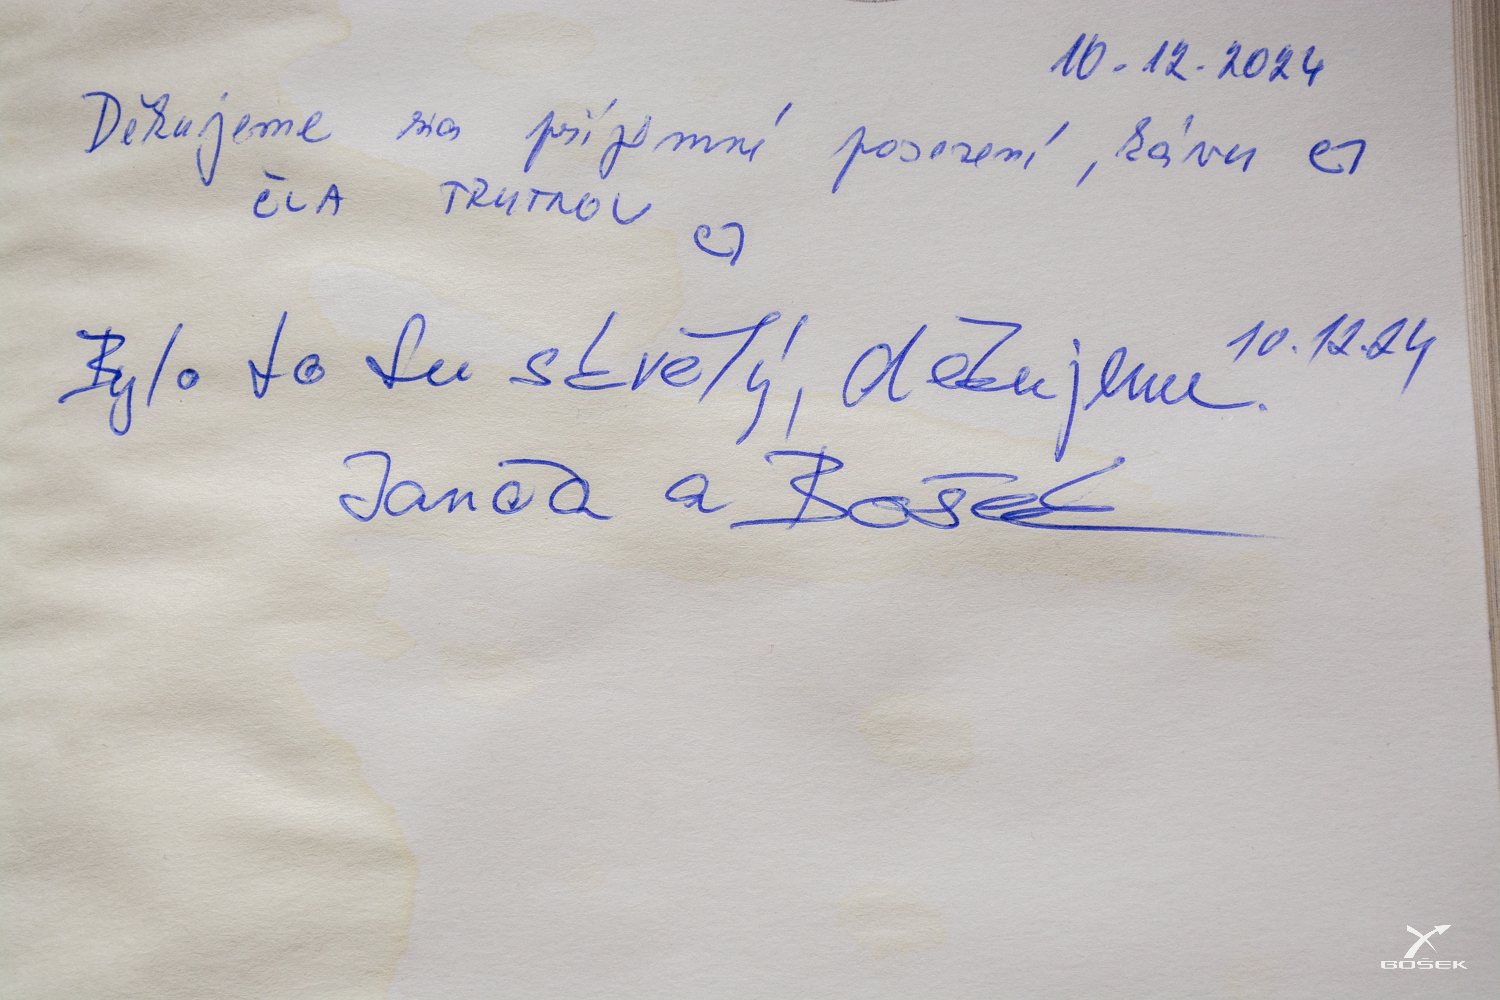 10.12.2024
Děkujeme za příjemné posezení, kávu
ČLA TRUTNOV
Bylo to tu skvělý, děkujeme. 10.12.24
Janča a Bošek
BOŠEK